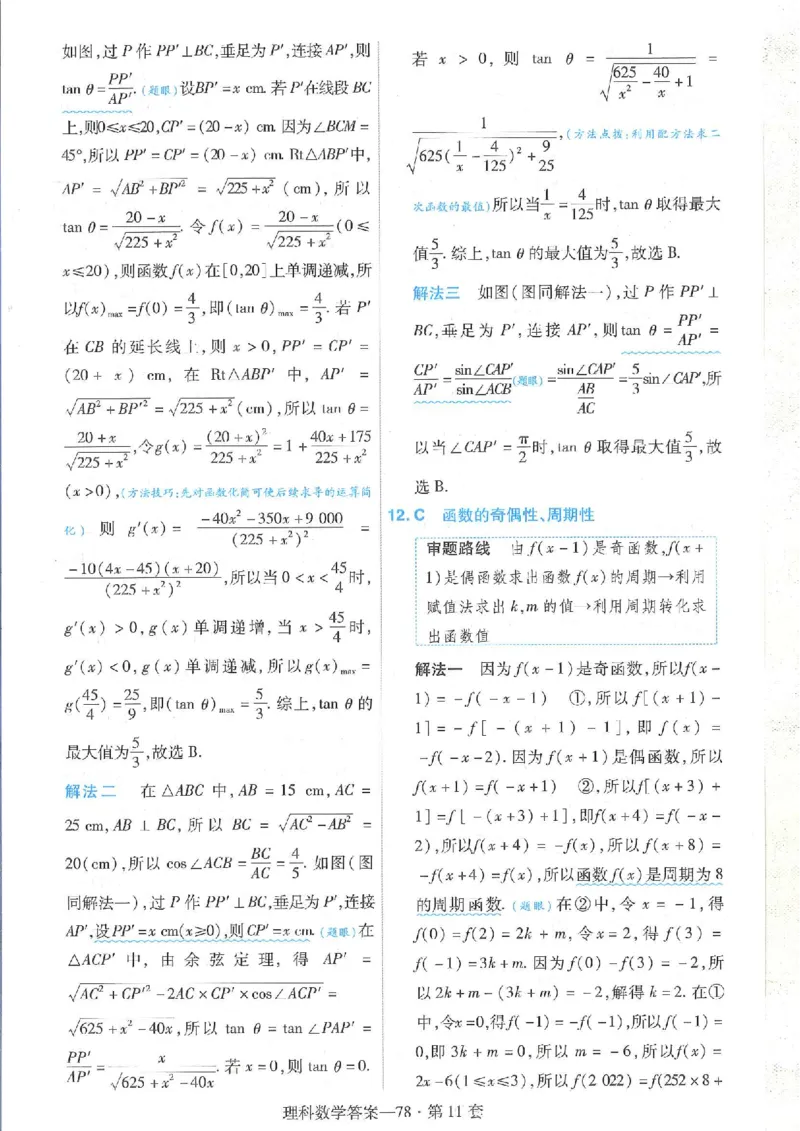 如图,过 P 作 PP′⊥BC,垂足为 P′,连接 AP′,则
tan θ=PP′/AP′.(题眼)设BP′=x cm.若P′在线段 BC
上,则0≤x≤20,CP′=(20-x) cm.因为∠BCM=
45°,所以 PP′=CP′=(20-x)cm.Rt△ABP′中,
AP′ = √(AB²+BP′²) = √(225+x²) (cm),所以
tan θ=(20-x)/√(225+x²).令f(x)=(20-x)/√(225+x²)(0≤
x≤20),则函数f(x)在[0,20]上单调递减,所
以f(x)max=f(0)=4/3,即(tan θ)max=4/3.若 P′
在 CB 的延长线上,则 x>0,PP′=CP′=
(20+ x) cm, 在 Rt△ABP′ 中, AP′ =
√(AB²+BP′²)=√(225+x²)(cm),所以 tan θ=
(20+x)/√(225+x²),令g(x)=(20+x)²/(225+x²)=1+(40x+175)/(225+x²)
(x>0),(方法技巧:先对函数化简可使后续求导的运算简
化) 则 g′(x) = (-40x²-350x+9 000)/(225+x²)² =
-10(4x-45)(x+20)/(225+x²)²,所以当0<x<45/4时,
g′(x)>0,g(x)单调递增,当 x>45/4时,
g′(x)<0,g(x)单调递减,所以g(x)max=
g(45/4)=25/9,即(tan θ)max=5/3.综上,tan θ的
最大值为5/3,故选 B.
解法二 在△ABC 中,AB=15 cm,AC=
25 cm,AB⊥BC,所以 BC=√(AC²-AB²)=
20(cm),所以 cos∠ACB=BC/AC=4/5.如图(图
同解法一),过 P 作 PP′⊥BC,垂足为P′,连接
AP′,设PP′=x cm(x≥0),则CP′=x cm.(题眼)在
△ACP′ 中, 由 余 弦 定 理, 得 AP′ =
√(AC²+CP′²-2AC×CP′×cos∠ACP′) =
√(625+x²-40x),所以 tan θ=tan∠PAP′=
PP′/AP′=x/√(625+x²-40x).若x=0,则tan θ=0.
若 x > 0, 则 tan θ = 1/√(625/x²-40/x+1) =
1/√(625(1/x-4/125)²+9/25),(方法点拨:利用配方法求二
次函数的最值)所以当1/x=4/125时,tan θ取得最大
值5/3.综上,tan θ的最大值为5/3,故选 B.
解法三 如图(图同解法一),过 P 作 PP′⊥
BC,垂足为 P′,连接 AP′,则tan θ=PP′/AP′=
CP′/AP′=sin∠CAP′/sin∠ACB(题眼)=sin∠CAP′/(AB/AC)=5/3sin∠CAP′,所
以当∠CAP′=π/2时,tan θ取得最大值5/3,故
选 B.
12.C 函数的奇偶性、周期性
审题路线 由f(x-1)是奇函数,f(x+
1)是偶函数求出函数f(x)的周期→利用
赋值法求出k,m的值→利用周期转化求
出函数值
解法一 因为f(x-1)是奇函数,所以f(x-
1)=-f(-x-1) ①,所以f[(x+1)-
1]=-f[-(x+1)-1],即f(x)=
-f(-x-2).因为f(x+1)是偶函数,所以
f(x+1)=f(-x+1) ②,所以f[(x+3)+
1]=f[-(x+3)+1],即f(x+4)=f(-x-
2),所以f(x+4)=-f(x),所以f(x+8)=
-f(x+4)=f(x),所以函数f(x)是周期为8
的周期函数.(题眼)在②中,令 x=-1,得
f(0)=f(2)=2k+m,令x=2,得f(3)=
f(-1)=3k+m.因为f(0)-f(3)=-2,所
以2k+m-(3k+m)=-2,解得k=2.在①
中,令x=0,得f(-1)=-f(-1),所以f(-1)=
0,即3k+m=0,所以m=-6,所以f(x)=
2x-6(1≤x≤3),所以f(2 022)=f(252×8+
理科数学答案—78·第11套